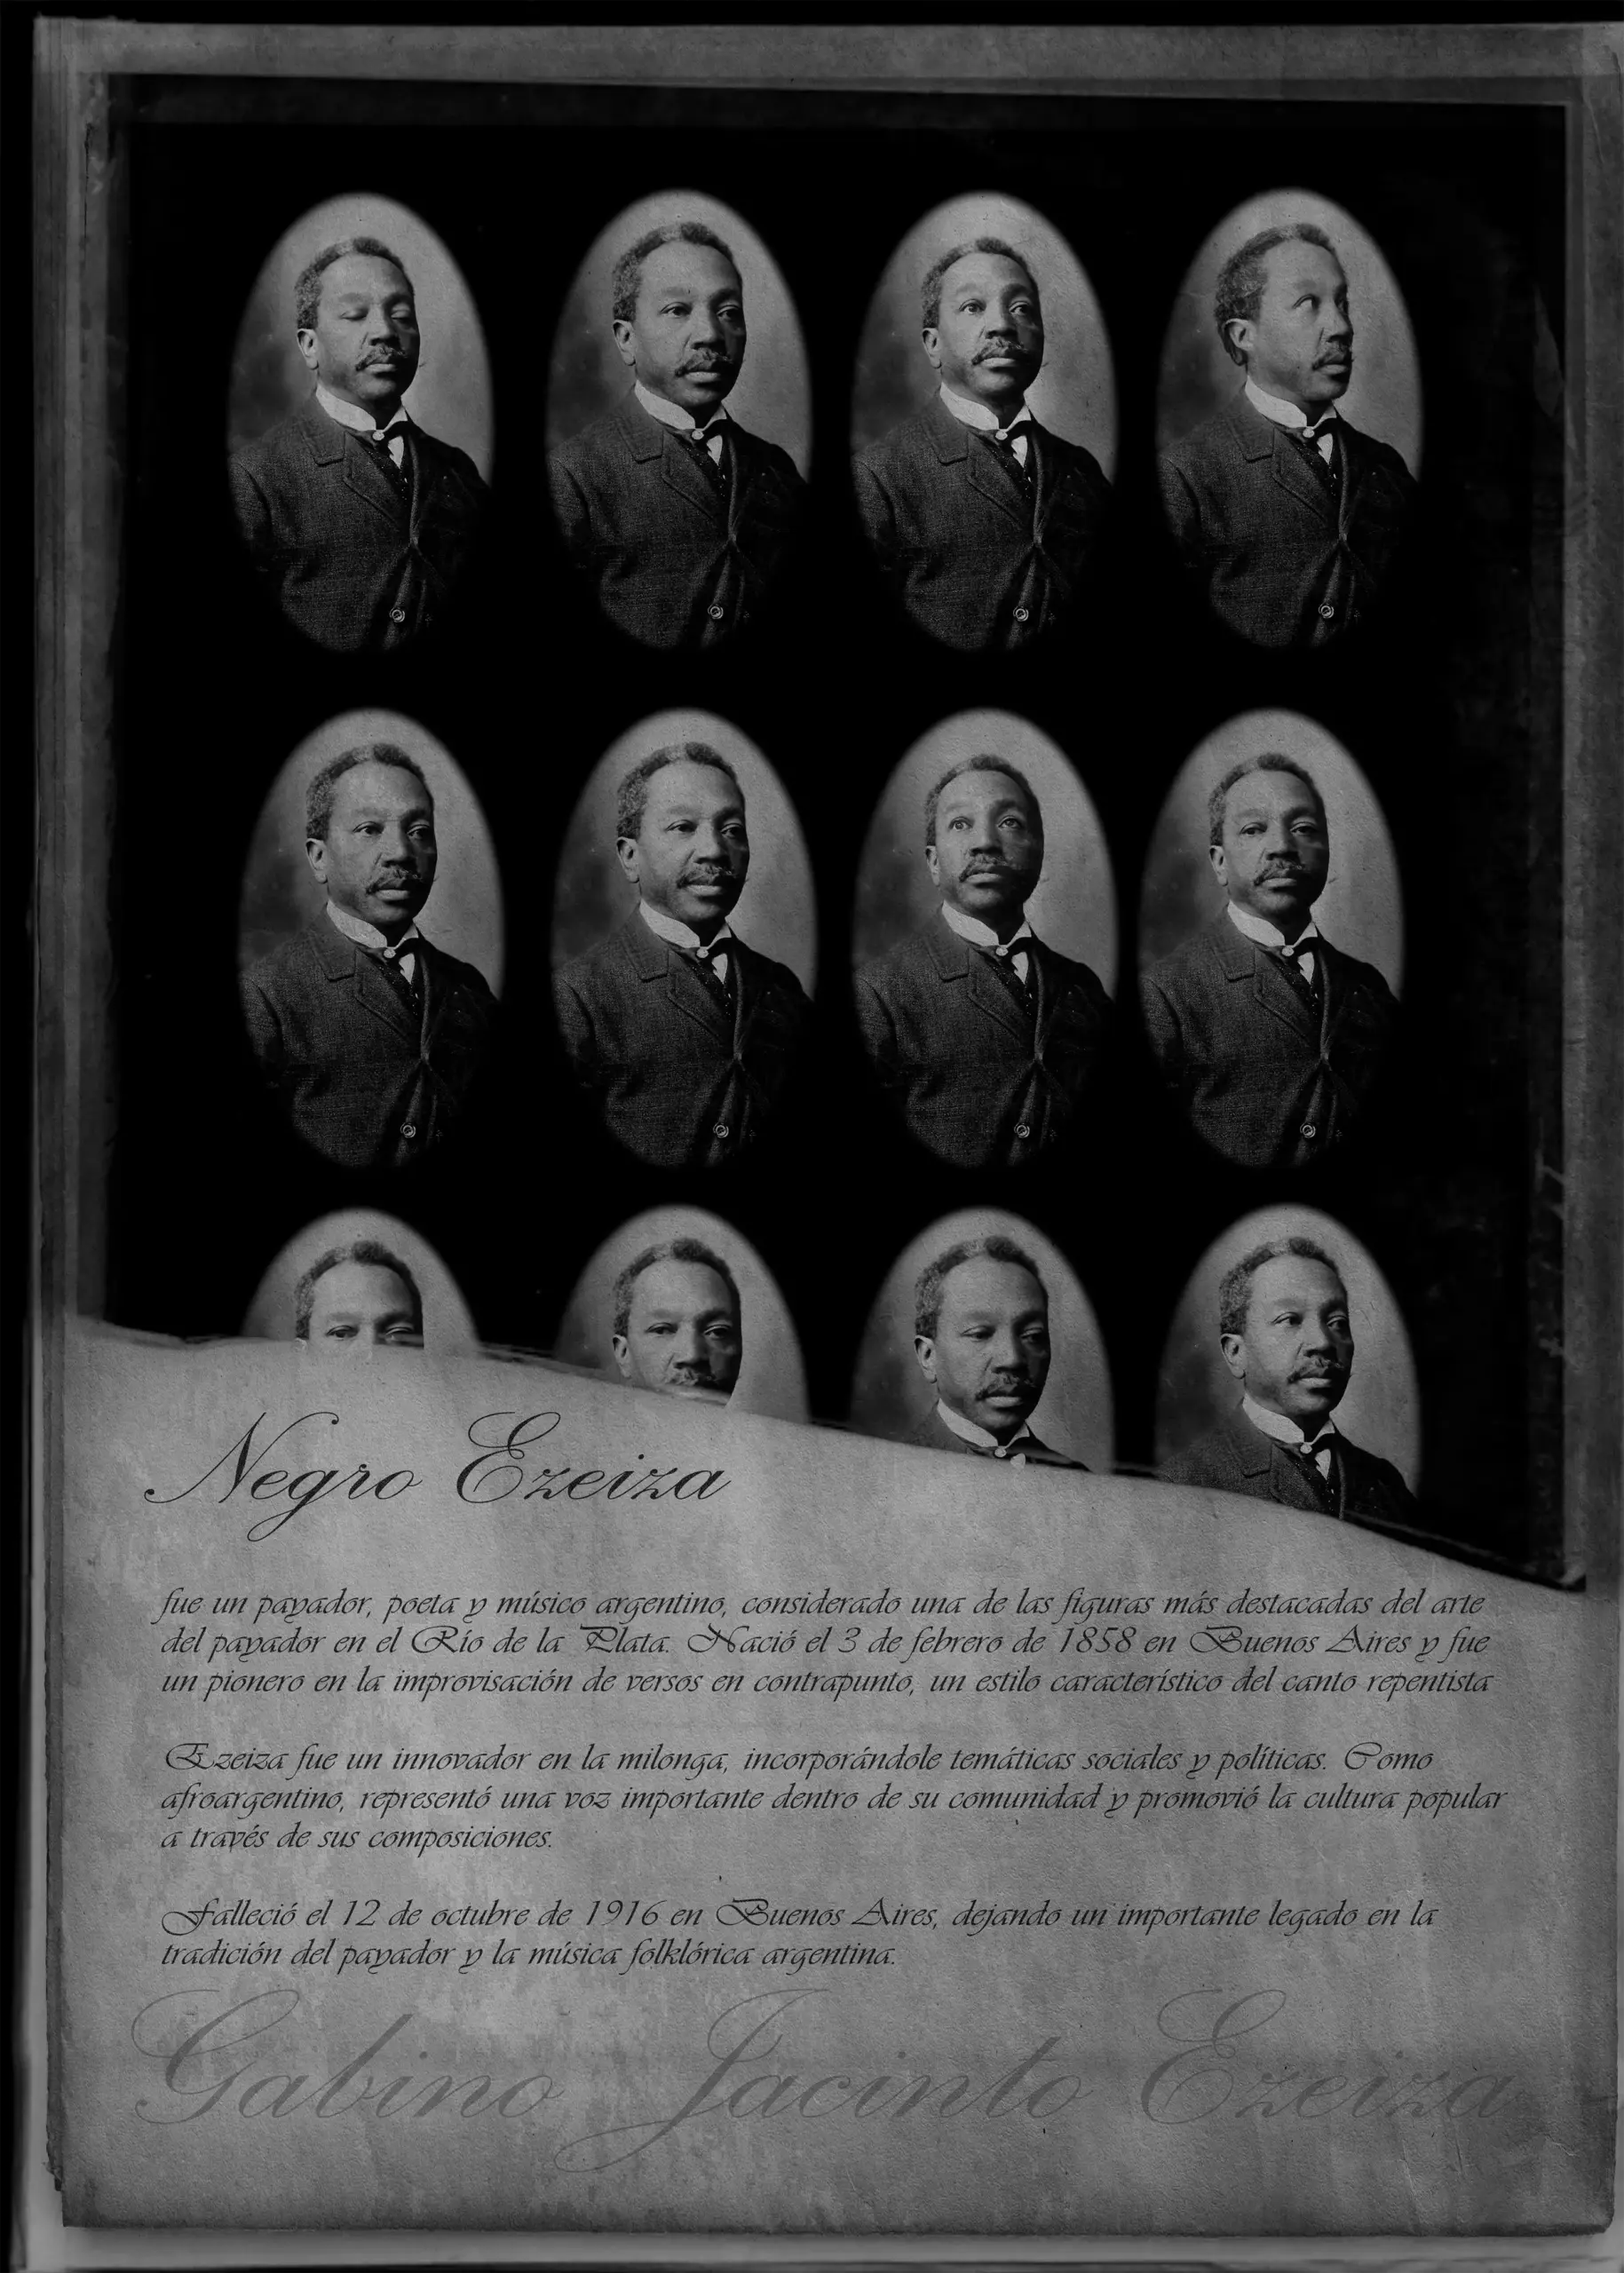 Negro Ezeiza
fue un payador, poeta y músico argentino, considerado una de las figuras más destacadas del arte
del payador en el Río de la Plata. Nació el 3 de febrero de 1858 en Buenos Aires y fue
un pionero en la improvisación de versos en contrapunto, un estilo característico del canto repentista
Ezeiza fue un innovador en la milonga, incorporándole temáticas sociales y políticas. Como
afroargentino, representó una voz importante dentro de su comunidad y promovió la cultura popular
a través de sus composiciones.
Falleció el 12 de octubre de 1916 en Buenos Aires, dejando un importante legado en la
tradición del payador y la música folklórica argentina.
Gabino Jacinto Ezeiza